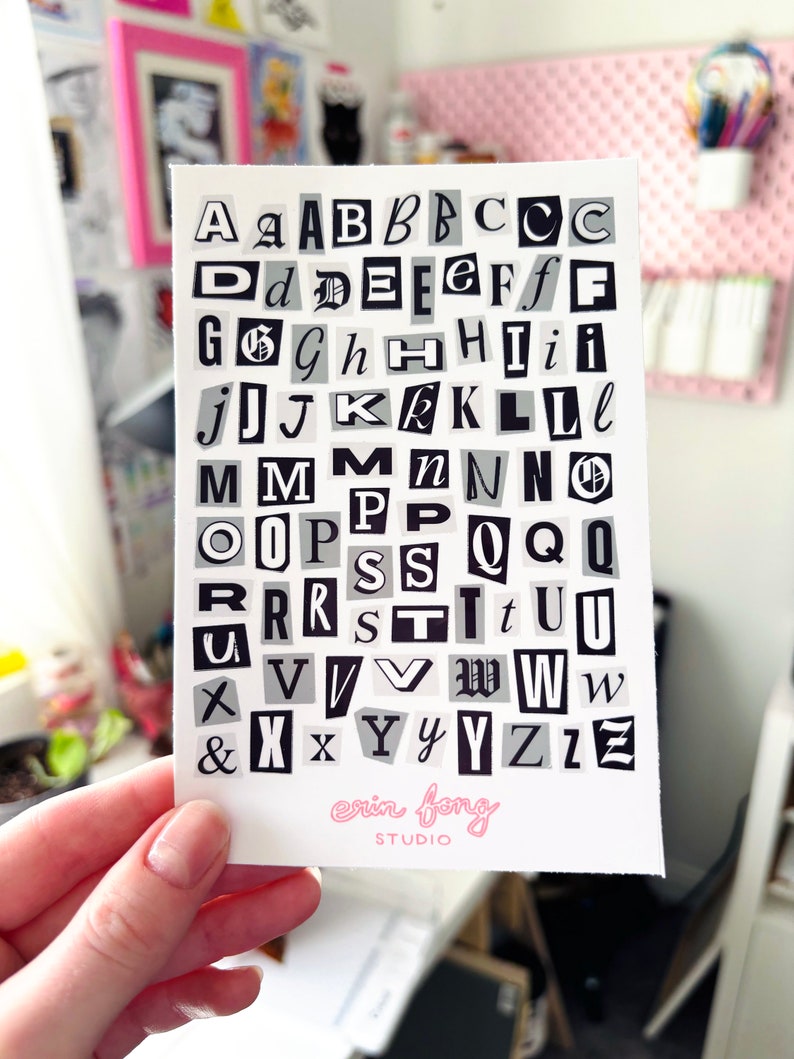 A a A B B B C C C
D d D E E e F f F
G G G h H H I i i
j J J K k K L L l
M M M n N N O
O O P P P Q Q Q
S S
R R R S T T t U U
U V V V W W w
X X x Y y Y Z z Z
&
erin fong
STUDIO